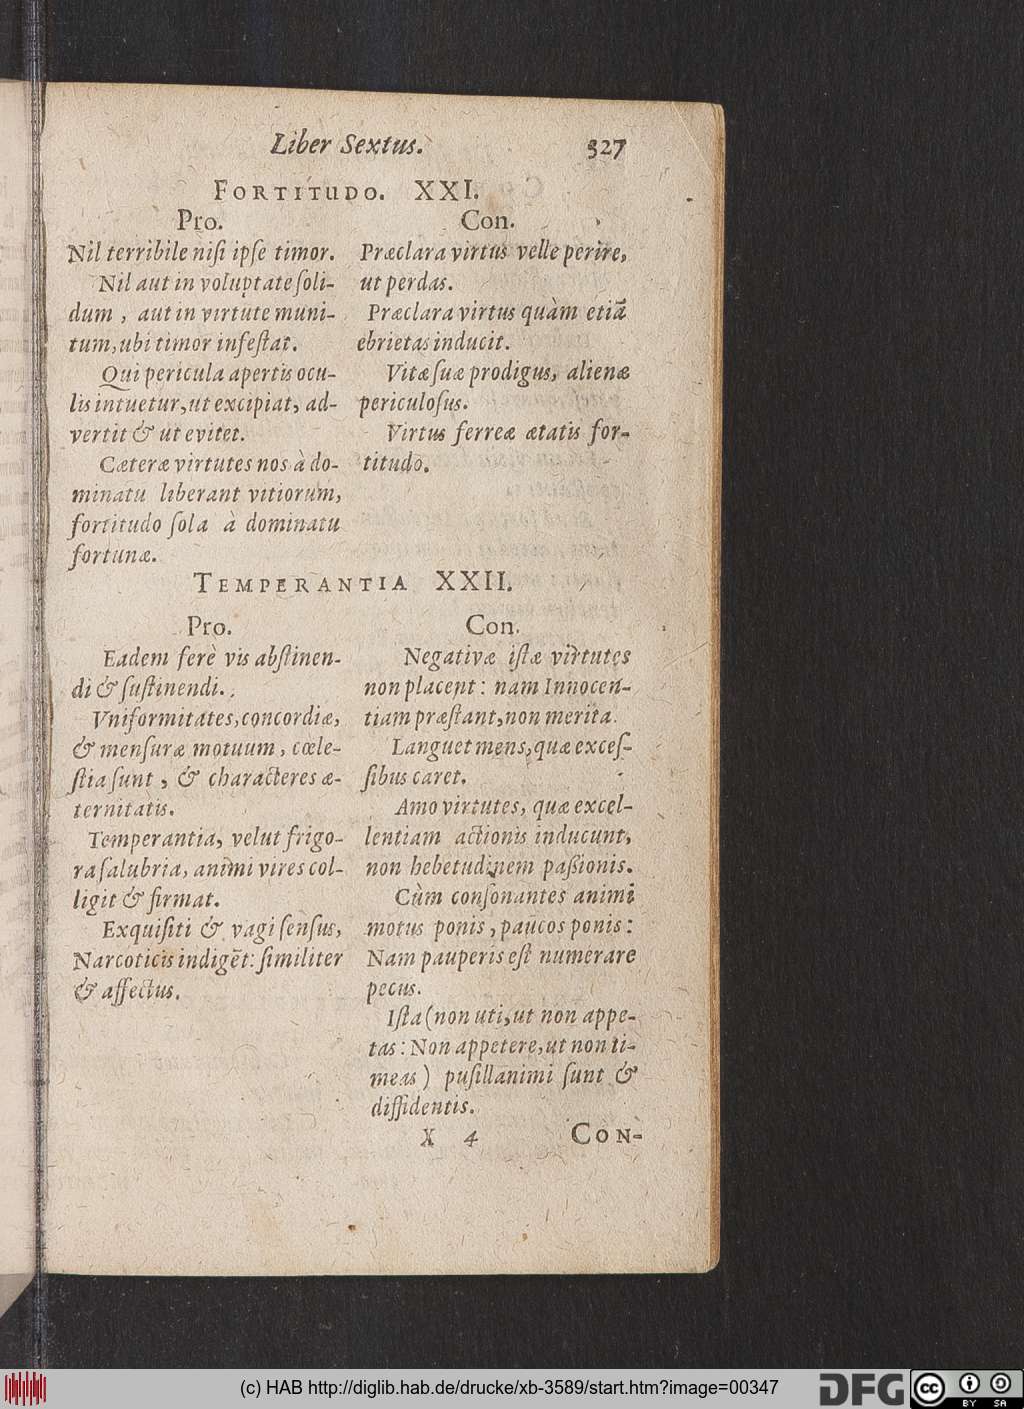 Liber Sextus. 327
FORTITUDO. XXI.
Pro.
Nil terribile nisi ipſe timor.
Nil aut in voluptate ſoli-
dum, aut in virtute muni-
tum, ubi timor infeſtat.
Qui pericula apertis ocu-
lis intuetur, ut excipiat, ad-
vertit & ut evitet.
Cæteræ virtutes nos à do-
minatu liberant vitiorum,
fortitudo ſola à dominatu
fortunæ.
Con.
Præclara virtus velle perire,
ut perdas.
Præclara virtus quàm etiã
ebrietas inducit.
Vitæ ſuæ prodigus, alienæ
periculoſus.
Virtus ferreæ ætatis for-
titudo.
TEMPERANTIA XXII.
Pro.
Eadem ferè vis abſtinen-
di & ſuſtinendi.
Vniformitates, concordiæ,
& menſuræ motuum, cœle-
ſtia ſunt, & characteres æ-
ternitatis.
Temperantia, velut frigo-
ra ſalubria, animi vires col-
ligit & firmat.
Exquiſiti & vagi ſenſus,
Narcoticis indigẽt: ſimiliter
& affectus.
Con.
Negativæ iſtæ virtutes
non placent: nam Innocen-
tiam præſtant, non merita.
Languet mens, quæ exceſ-
ſibus caret.
Amo virtutes, quæ excel-
lentiam actionis inducunt,
non hebetudinem paßionis.
Cùm conſonantes animi
motus ponis, paucos ponis:
Nam pauperis eſt numerare
pecus.
Iſta (non uti, ut non appe-
tas: Non appetere, ut non ti-
meas) puſillanimi ſunt &
diffidentis.
X 4 CON-
(c) HAB http://diglib.hab.de/drucke/xb-3589/start.htm?image=00347
DFG cc BY SA